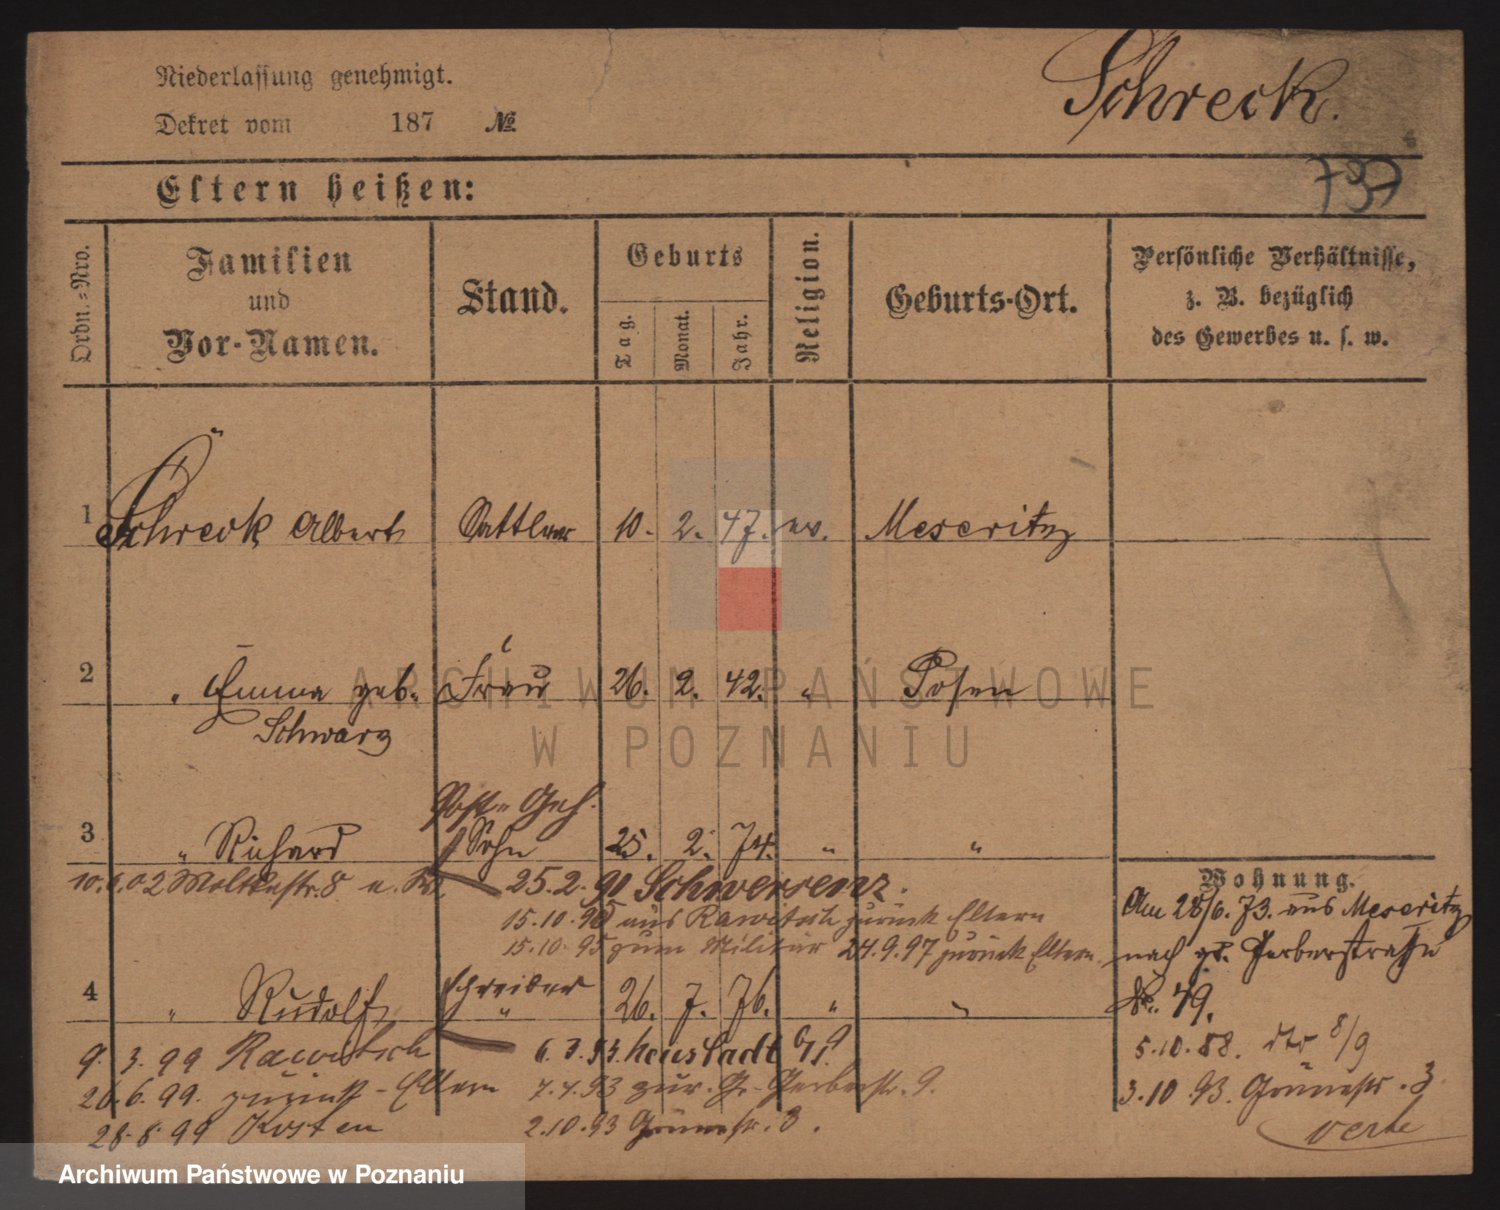 Niederlassung genehmigt.
Schreck.
Dekret vom 187 №
797
Eltern heißen:
Ordn.-Nro.
Familien und Vor-Namen.
Stand.
Geburts
Tag.
Monat.
Jahr.
Religion.
Geburts-Ort.
Persönliche Verhältnisse,
z. B. bezüglich
des Gewerbes u. s. w.
1 Schreck Albert Sattler 10. 2. 47. ev. Meseritz
2 " Emma geb. Frau 26. 2. 42. " Posen
Schwarz
Post-Geh.
3 " Richard Sohn 25. 2. 74. " "
10. 6. 02 Moltkestr. 8 25. 2. 91 Schwersenz.
15.10.95 aus Rawitsch zurück Eltern
15.10.95 zum Militär 24.9.97 zurück Eltern
4 " Rudolf Schreiber " 26. 7. 76. " "
9. 3. 99 Rawitsch 6. 3. 93. Neustadt
26. 6. 99. zurück - Eltern 7. 4. 93 zur. Gr. Gerberstr. 9.
28. 8. 99 Kosten 2.10.93 Grünestr. 3.
Wohnung.
Am 28/6. 73. aus Meseritz
nach gr. Gerberstraße
No. 49.
5.10.88. dto 8/9
3.10.93. Grünestr. 3
verte
ARCHIWUM PAŃSTWOWE
W POZNANIU
Archiwum Państwowe w Poznaniu